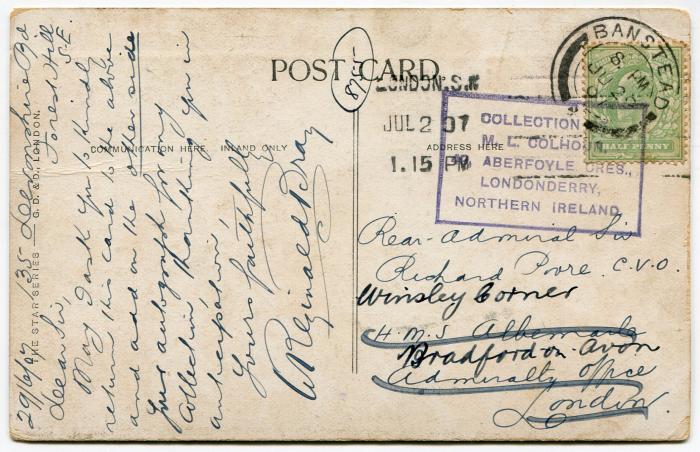 POST CARD
COMMUNICATION HERE. INLAND ONLY
ADDRESS HERE
THE STAR SERIES — G. D. & D., LONDON.
29/6/07 135 Devonshire Rd
Forest Hill
S.E.
Dear Sir,
May I ask you to kindly
return this card to the above
and add on the other side
your autograph for my
collection, thanking you in
anticipation,
Yours faithfully
W Reginald Bray
LONDON. S.W
JUL 2 07
1.15 PM
BANSTEAD
HALF PENNY
COLLECTION
M. L. COLHOUN
30 ABERFOYLE CRES.,
LONDONDERRY,
NORTHERN IRELAND
Rear-Admiral Sir
Richard Poore. C.V.O.
Winsley Corner
H.M.S Albemarle
Bradford on Avon
Admiralty Office
London.